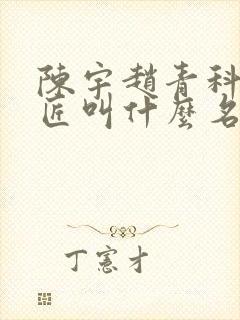 陳宇趙青科
匠叫什麼名
丁憲才